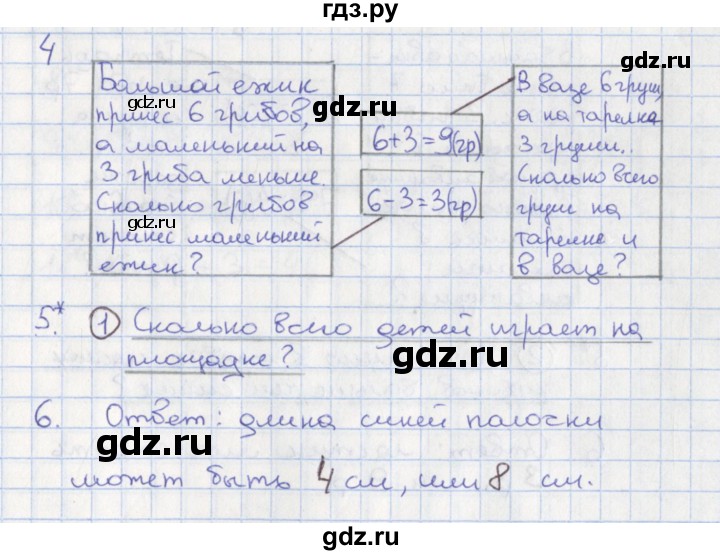 гдз.ру
4
Большой ежик
gdz.ru
принес 6 грибов,
а маленький на
3 гриба меньше.
Сколько грибов
gdz.ru
принес маленький
ежик?
6+3=9(гр)
gdz.ru
6-3=3(гр)
В вазе 6 груш,
gdz.ru
а на тарелке
3 груши..
Сколько всего
груш на
gdz.ru
тарелке и
в вазе?
5.* 1 Сколько всего детей играет на
площадке?
gdz.ru
6. Ответ: длина синей палочки
gdz.ru
gdz.ru
может быть 4 см, или 8 см.
gdz.ru